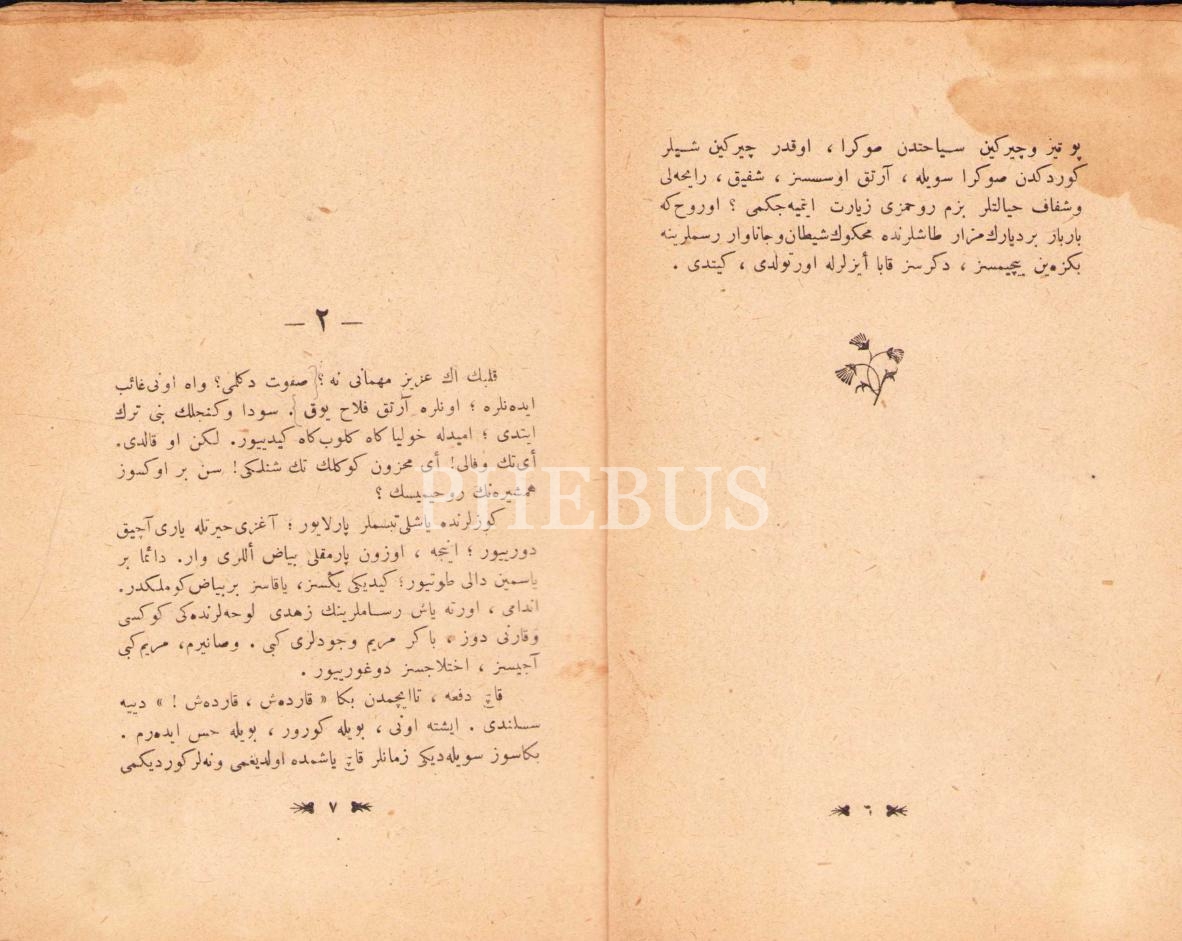 پو تیز وچیركین سیاحتدن صوكرا ، اوقدر چیركین شیلر
كوردكدن صوكرا سویله ، آرتق اوسسز ، شفیق ، رایحه‌لی
وشفاف خیالتلر بزم روحمزی زیارت ایتمیه‌جكمی ؟ اوروح كه
بارباز بردیارك مزار طاشلرنده محكوك شیطان وجاناوار رسملرینه
بكزه‌ین پیچیمسز ، دكرسز قابا أیزلرله اورتولدی ، كیتدی .
٦
— ٢ —
قلبك اك عزیز مهمانی نه ؟ صفوت دكلمی ؟ واه اونی غائب
ایده‌نلره ؛ اونلره آرتق فلاح یوق . سودا وكنجلك بنی ترك
ایتدی ؛ امیدله خولیا كاه كلوب كاه كیدییور. لكن او قالدی.
أی تك وفالی! أی محزون كوكلك تك شنلكی! سن بر اوكسوز
همشیره‌نك روحیمیسك ؟
كوزلرنده یاشلی تبسملر پارلایور ؛ آغزی حیرتله یاری آچیق
دورییور ؛ اینجه ، اوزون پارمقلی بیاض أللری وار. دائما بر
یاسمین دالی طوتیور؛ كیدیكی یكسز، یاقاسز بربیاض كوملكدر.
اندامی ، اورته یاش رساملرینك زهدی لوحه‌لرنده‌كی كوكسی
وقارنی دوز ، باكر مریم وجودلری كبی . وصانیرم، مریم كبی
آجیسز ، اختلاجسز دوغورییور .
قاچ دفعه ، تاایچمدن بكا « قارده‌ش ، قارده‌ش ! » دییه
سسلندی . ایشته اونی ، بویله كورور ، بویله حس ایده‌رم .
بكاسوز سویله‌دیكی زمانلر قاچ یاشمده اولدیغمی ونه‌لر كوردیكمی
٧
PHEBUS